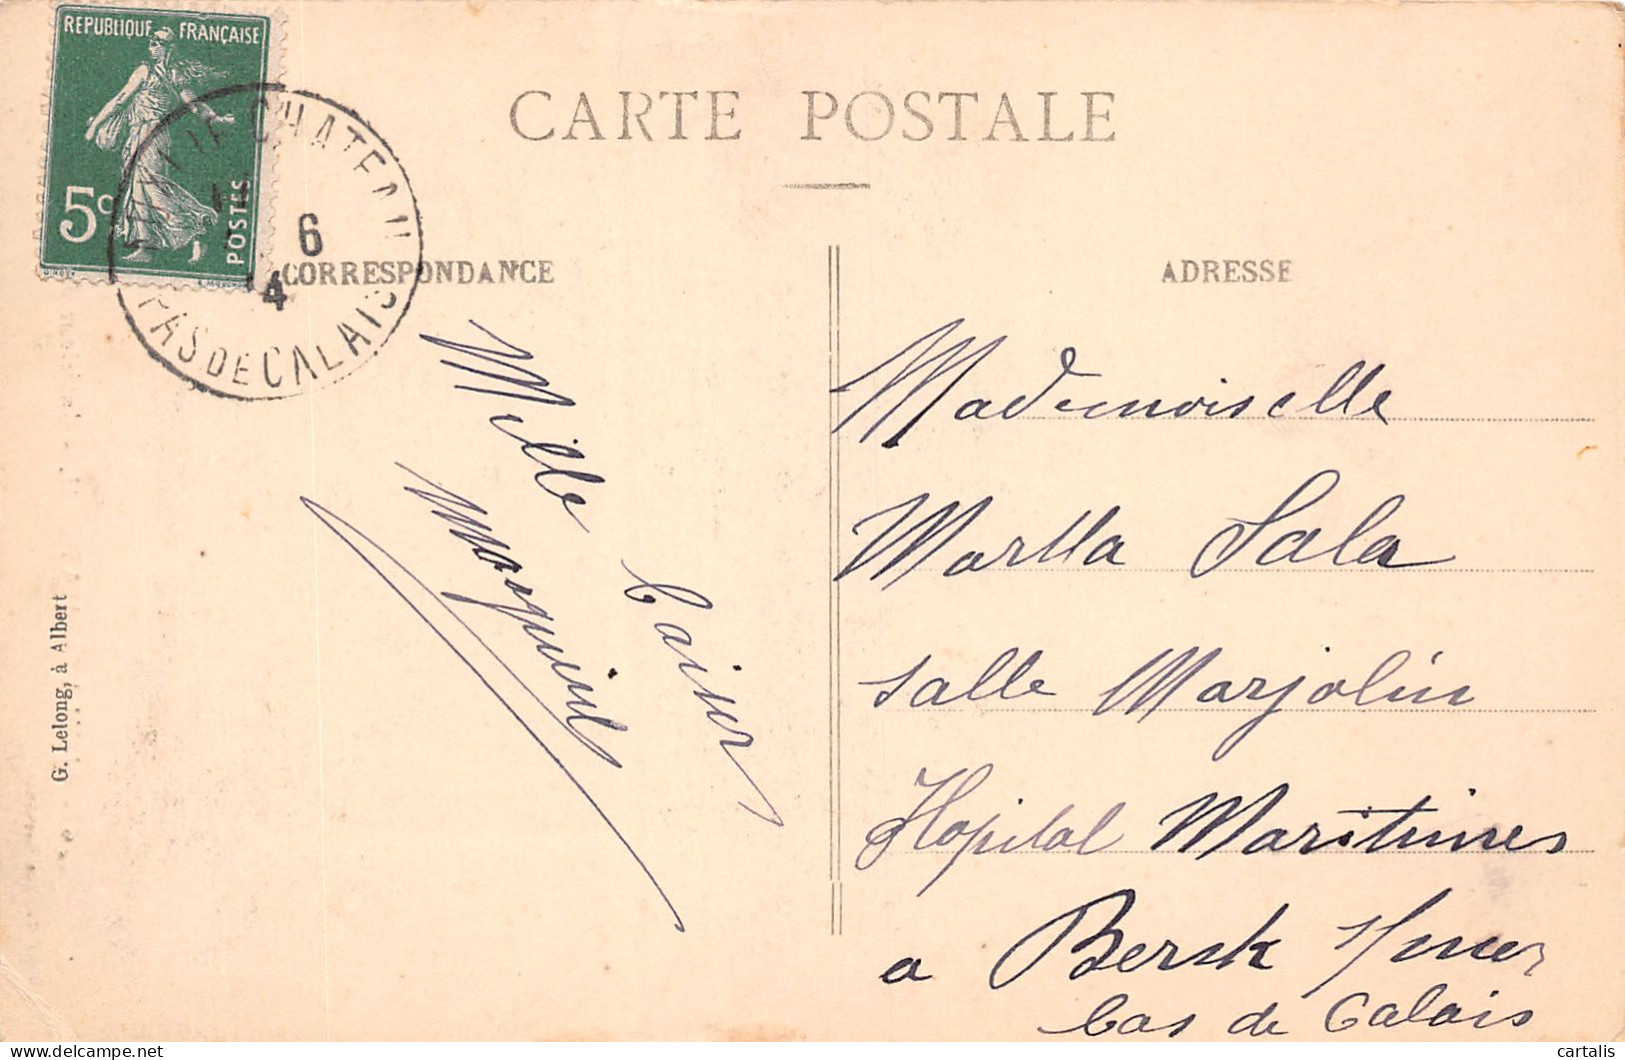 REPUBLIQUE FRANÇAISE
5c
POSTES
CHATEAU
6
4
PAS DE CALAIS
CARTE POSTALE
CORRESPONDANCE
ADRESSE
Mille
baisers
Mademoiselle
Martha Sala
salle Marjolin
Hopital Maritimes
a Berck s/mer
Pas de Calais
G. Lelong, à Albert
cartalis
delcampe.net